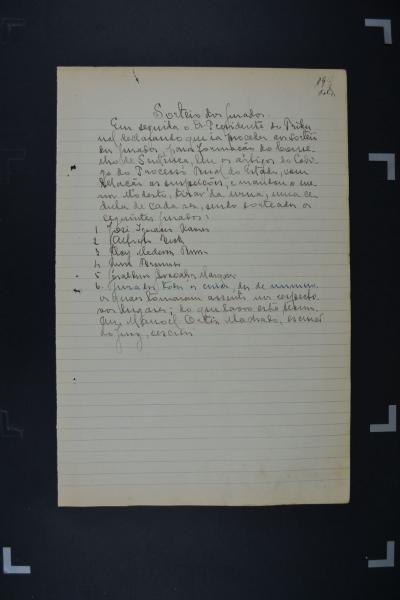 19
Sorteio dos Jurados.
Em seguida o Dr Presidente do Tribu
nal declarando que ia proceder ao sorteio
dos jurados, para formação do Conse
lho de Sentença, leu os artigos do Codi
go do Processo Penal do Estado, com
relação as suspeições, e mandou o me
nor Modesto, tirar da urna, uma ce
dula de cada vez, sendo sorteados os
seguintes jurados:
1 José Ignacio
2 Alfredo
3 Medeiros
4
5 Gonçalves Marques
6. Jurados
os quaes tomaram assento nos respecti
vos lugares; do que lavro este termo.
Eu, Manoel Ortiz Machado, escrivão
do jury, escrevi